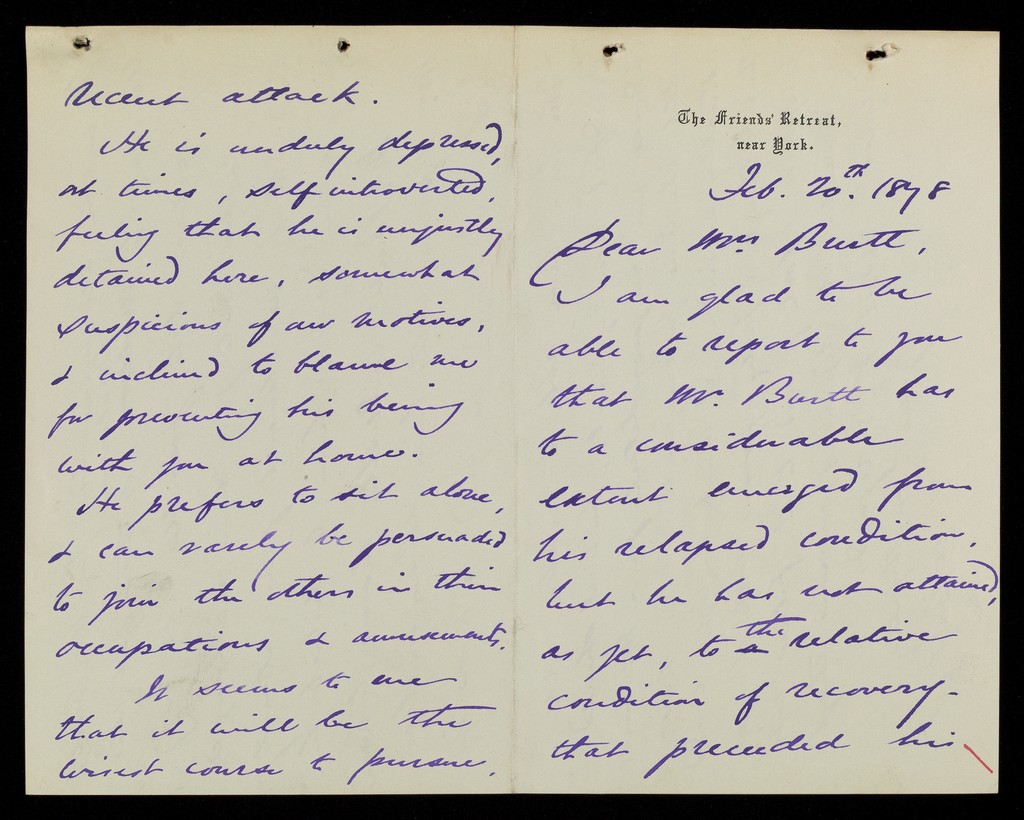 The Friends' Retreat,
near York.
Feb. 20.th 1878
Dear Mrs Burtt,
I am glad to be
able to report to you
that Mr. Burtt has
to a considerable
extent emerged from
his relapsed condition,
but he has not attained,
as yet, to a the relative
condition of recovery-
that preceded his
recent attack.
He is unduly depressed,
at times, self introverted,
feeling that he is unjustly
detained here, somewhat
suspicious of our motives,
& inclined to blame me
for preventing his being
with you at home.
He prefers to sit alone,
& can rarely be persuaded
to join the others in their
occupations & amusements.
It seems to me
that it will be the
wisest course to pursue,